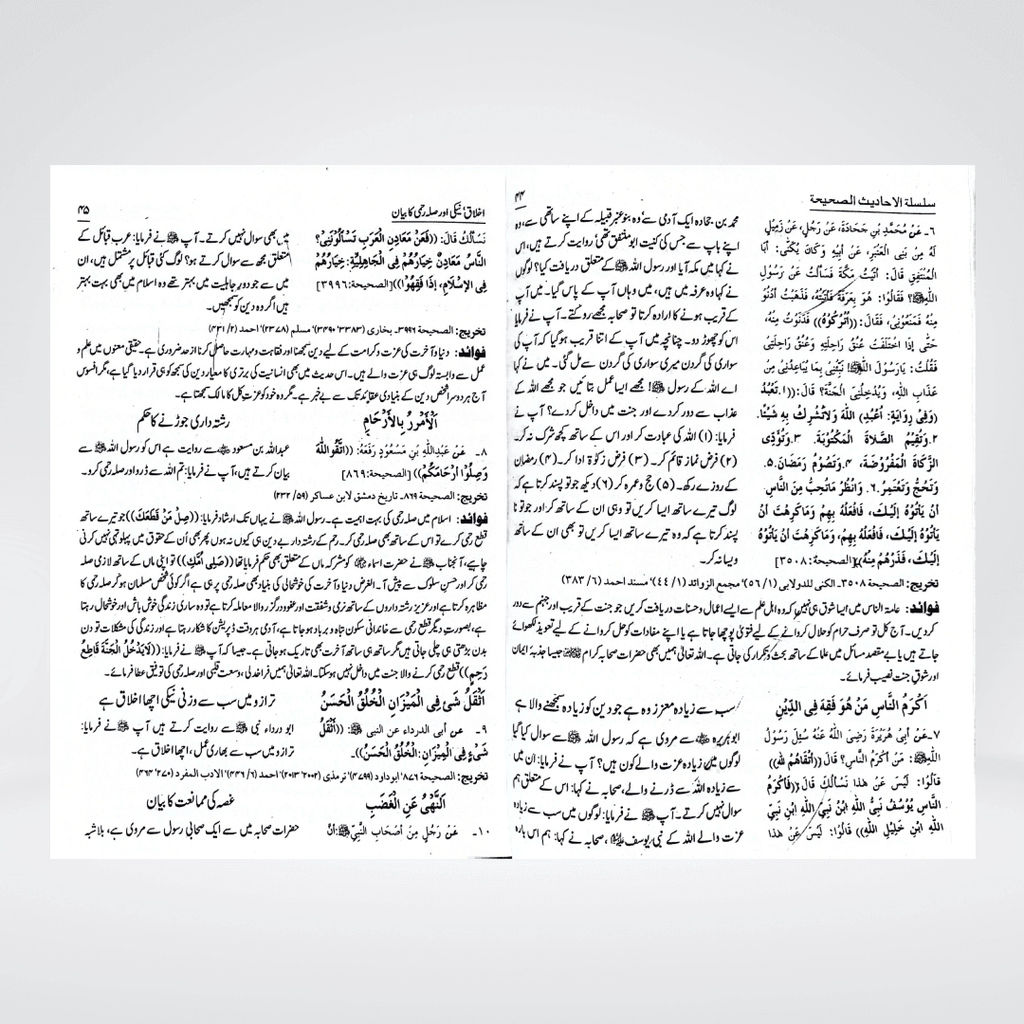 سلسلة الاحاديث الصحيحة
۴۴
٦۔ عَنْ مُحَمَّدِ بْنِ جُحَادَةَ، عَنْ رَجُلٍ، عَنْ زَمِيْلٍ
لَهُ مِنْ بَنِي الْعَنْبَرِ، عَنْ أَبِيْهِ وَكَانَ يُكَنّٰى: أَبَا
الْمُنْتَفِقِ قَالَ: أَتَيْتُ مَكَّةَ فَسَأَلْتُ عَنْ رَسُوْلِ
اللّٰهِ ﷺ؟ فَقَالُوْا: هُوَ بِعَرَفَةَ فَأَتَيْتُهُ، فَذَهَبْتُ أَدْنُوْ
مِنْهُ فَمَنَعُوْنِي، فَقَالَ: ((أُتْرُكُوْهُ)) فَدَنَوْتُ مِنْهُ،
حَتّٰى إِذَا اخْتَلَفَتْ عُنُقُ رَاحِلَتِهِ وَعُنُقُ رَاحِلَتِي
فَقُلْتُ: يَارَسُوْلَ اللّٰهِ ﷺ! نَبِّئْنِي بِمَا يُبَاعِدُنِي مِنْ
عَذَابِ اللّٰهِ، وَيُدْخِلُنِي الْجَنَّةَ؟ قَالَ: ((١۔تَعْبُدُ
(وَفِي رِوَايَةٍ: أُعْبُدِ) اللّٰهَ وَلَاتُشْرِكْ بِهِ شَيْئًا.
٢۔وَتُقِيْمُ الصَّلَاةَ الْمَكْتُوْبَةَ. ٣۔وَتُؤَدِّي
الزَّكَاةَ الْمَفْرُوْضَةَ، ٤۔وَتَصُوْمُ رَمَضَانَ. ٥۔
وَتَحُجُّ وَتَعْتَمِرُ. ٦۔ وَانْظُرْ مَاتُحِبُّ مِنَ النَّاسِ
أَنْ يَأْتُوْهُ إِلَيْكَ، فَافْعَلْهُ بِهِمْ وَمَاكَرِهْتَ أَنْ
يَأْتُوْهُ إِلَيْكَ، فَافْعَلْهُ بِهِمْ، وَمَاكَرِهْتَ أَنْ يَأْتُوْهُ
إِلَيْكَ، فَذَرْهُمْ مِنْهُ))[الصحيحة:٣٥٠٨]
محمد بن جحادہ ایک آدمی سے وہ بنو عنبر قبیلہ کے اپنے ساتھی سے، وہ
اپنے باپ سے جس کی کنیت ابو منتفق تھی' روایت کرتے ہیں، اس
نے کہا میں مکہ آیا اور رسول اللہ ﷺ کے متعلق دریافت کیا؟ لوگوں
نے کہا وہ عرفہ میں ہیں، میں وہاں آپ کے پاس گیا۔ میں آپ
کے قریب ہونے کا ارادہ کرتا تو صحابہ مجھے روکتے۔ آپ نے فرمایا
اس کو چھوڑ دو۔ چنانچہ میں آپ کے اتنا قریب ہو گیا کہ آپ کی
سواری کی گردن میری سواری کی گردن سے مل گئی۔ میں نے کہا
اے اللہ کے رسول ﷺ! مجھے ایسا عمل بتائیں جو مجھے اللہ کے
عذاب سے دور کر دے اور جنت میں داخل کر دے؟ آپ نے
فرمایا: (۱) اللہ کی عبادت کر اور اس کے ساتھ کچھ شرک نہ کر۔
(۲) فرض نماز قائم کر۔ (۳) فرض زکوٰۃ ادا کر۔ (۴) رمضان
کے روزے رکھ۔ (۵) حج و عمرہ کر (۶) دیکھ جو تو پسند کرتا ہے کہ
لوگ تیرے ساتھ ایسا کریں تو وہی ان کے ساتھ کر اور جو تو نا
پسند کرتا ہے کہ وہ تیرے ساتھ ایسا کریں تو بھی ان کے ساتھ
ویسا نہ کر۔
تخریج: الصحیحة ۳۵۰۸۔ الکنی للدولابی (۱/ ۵۶)' مجمع الزوائد (۱/ ۴۴)' مسند احمد (۶/ ۳۸۳)
فوائد: عامۃ الناس میں ایسا شوق ہی نہیں کہ وہ اہل علم سے ایسے اعمال و حسنات دریافت کریں جو جنت کے قریب اور جہنم سے دور
کر دیں۔ آج کل تو صرف حرام کو حلال کروانے کے لیے فتویٰ پوچھا جاتا ہے یا اپنے مفادات کو حل کروانے کے لیے تعویذ لکھوائے
جاتے ہیں یا بے مقصد مسائل میں علماء کے ساتھ بحث و تکرار کی جاتی ہے۔ اللہ تعالیٰ ہمیں بھی حضرات صحابہ کرام جیسا جذبہ ایمان
اور شوق جنت نصیب فرمائے۔
أَكْرَمُ النَّاسِ مَنْ هُوَ فَقِهَ فِي الدِّيْنِ
سب سے زیادہ معزز وہ ہے جو دین کو زیادہ سمجھنے والا ہے
٧۔عَنْ أَبِي هُرَيْرَةَ رَضِيَ اللّٰهُ عَنْهُ سُئِلَ رَسُوْلُ
اللّٰهِ ﷺ: مَنْ أَكْرَمُ النَّاسِ؟ قَالَ ((أَتْقَاهُمْ لِلّٰهِ))
قَالُوْا: لَيْسَ عَنْ هٰذَا نَسْأَلُكَ قَالَ((فَأَكْرَمُ
النَّاسِ يُوْسُفُ نَبِيُّ اللّٰهِ ابْنُ نَبِيِّ اللّٰهِ ابْنِ نَبِيِّ
اللّٰهِ ابْنِ خَلِيْلِ اللّٰهِ)) قَالُوْا: لَيْسَ عَنْ هٰذَا
ابو ہریرہ سے مروی ہے کہ رسول اللہ ﷺ سے سوال کیا گیا
لوگوں میں زیادہ عزت والے کون ہیں؟ آپ نے فرمایا: ان میں
سے زیادہ اللہ سے ڈرنے والے، صحابہ نے کہا: اس کے متعلق ہم
سوال نہیں کرتے۔ آپ نے فرمایا: لوگوں میں سب سے زیادہ
عزت والے اللہ کے نبی یوسف ہیں، صحابہ نے کہا: ہم اس بارہ
اخلاق' نیکی اور صلہ رحمی کا بیان
۴۵
نَسْأَلُكَ قَالَ: ((فَعَنْ مَعَادِنِ الْعَرَبِ تَسْأَلُوْنِّيْ؟
النَّاسُ مَعَادِنُ خِيَارُهُمْ فِي الْجَاهِلِيَّةِ: خِيَارُهُمْ
فِي الْإِسْلَامِ، إِذَا فَقِهُوْا))[الصحيحة:٣٩٩٦]
میں بھی سوال نہیں کرتے۔ آپ ﷺ نے فرمایا: عرب قبائل کے
متعلق مجھ سے سوال کرتے ہو؟ لوگ کئی قبائل پر مشتمل ہیں، ان
میں سے جو دور جاہلیت میں بہتر تھے وہ اسلام میں بھی بہت بہتر
ہیں اگر وہ دین کو سمجھیں۔
تخریج: الصحیحة ۳۹۹۶۔ بخاری (۳۳۸۳' ۳۴۹۰)' مسلم (۲۳۷۸)' احمد (۲/ ۴۳۱)
فوائد: دنیا و آخرت کی عزت و کرامت کے لیے دین سمجھنا اور فقاہت و مہارت حاصل کرنا از حد ضروری ہے۔ حقیقی معنوں میں علم و
عمل سے وابستہ لوگ ہی عزت والے ہیں۔ اس حدیث میں بھی انسانیت کی برتری کا معیار دین کی سمجھ کو ہی قرار دیا گیا ہے، مگر افسوس
آج ہر دوسرا شخص دین کے بنیادی عقائد تک سے بے خبر ہے۔ مگر وہ خود کو عزت کل کا مالک سمجھتا ہے۔
اَلْأَمْرُ بِالْأَرْحَامِ
رشتہ داری جوڑنے کا حکم
٨۔ عَنْ عَبْدِاللّٰهِ بْنِ مَسْعُوْدٍ رَفَعَهُ: ((اتَّقُوا اللّٰهَ
وَصِلُوْا أَرْحَامَكُمْ)) [الصحيحة:٨٦٩]
عبداللہ بن مسعود سے روایت ہے اس کو رسول اللہ ﷺ سے
بیان کرتے ہیں، آپ نے فرمایا: تم اللہ سے ڈرو اور صلہ رحمی کرو۔
تخریج: الصحیحة ۸۶۹۔ تاریخ دمشق لابن عساکر (۵۹/ ۲۳۲)
فوائد: اسلام میں صلہ رحمی کی بہت اہمیت ہے۔ رسول اللہ ﷺ نے یہاں تک ارشاد فرمایا: ((صِلْ مَنْ قَطَعَكَ)) جو تیرے ساتھ
قطع رحمی کرے تو اس کے ساتھ بھی صلہ رحمی کر۔ رحم کے رشتہ دار بے دین ہی کیوں نہ ہوں پھر بھی اُن کے حقوق میں پہلو تہی نہیں کرنی
چاہیے، آنجناب ﷺ نے حضرت اسماء کو مشرکہ ماں کے متعلق بھی حکم فرمایا تھا ((صَلِي أُمَّكِ)) تو اپنی ماں کے ساتھ لازمی صلہ
رحمی کر اور حسن سلوک سے پیش آ۔ الغرض دنیا و آخرت کی خوشحالی کی بنیاد بھی صلہ رحمی پر ہی ہے اگر کوئی شخص مسلمان ہو کر صلہ رحمی کا
مظاہرہ کرتا ہے اور عزیز رشتہ داروں کے ساتھ نرمی و شفقت اور عفو و درگزر والا معاملہ کرتا ہے تو وہ ساری زندگی خوش باش اور خوشحال رہتا
ہے، بصورت دیگر قطع رحمی سے خاندانی سکون تباہ و برباد ہو جاتا ہے، آدمی ہر وقت ڈپریشن کا شکار رہتا ہے اور زندگی کی مشکلات تو دن
بدن بڑھتی ہی چلی جاتی ہیں مگر ساتھ ہی ساتھ آخرت بھی تاریک ہو جاتی ہے۔ جیسا کہ آپ ﷺ نے فرمایا: ((لَايَدْخُلُ الْجَنَّةَ قَاطِعُ
رَحِمٍ)) قطع رحمی کرنے والا جنت میں داخل نہیں ہو سکتا۔ اللہ تعالیٰ ہمیں فراخدلی، وسعت قلبی اور صلہ رحمی کی توفیق عطا فرمائے۔
أَثْقَلُ شَيْءٍ فِي الْمِيْزَانِ الْخُلُقُ الْحَسَنُ
ترازو میں سب سے وزنی نیکی اچھا اخلاق ہے
٩۔ عن أبي الدرداء عن النبي ﷺ: ((أَثْقَلُ
شَيْءٍ فِي الْمِيْزَانِ: الْخُلُقُ الْحَسَنُ))۔
ابو درداء نبی ﷺ سے روایت کرتے ہیں آپ ﷺ نے فرمایا:
ترازو میں سب سے بھاری عمل، اچھا اخلاق ہے۔
تخریج: الصحیحة ۸۷۶' ابوداود (۴۷۹۹)' ترمذی (۲۰۰۲' ۲۰۱۳)' احمد (۶/ ۴۴۶)' الادب المفرد (۲۷۰' ۴۶۴)
اَلنَّهْيُ عَنِ الْغَضَبِ
غصہ کی ممانعت کا بیان
١٠۔ عَنْ رَجُلٍ مِنْ أَصْحَابِ النَّبِيِّ ﷺ: أَنَّ
حضرات صحابہ میں سے ایک صحابی رسول سے مروی ہے، بلاشبہ